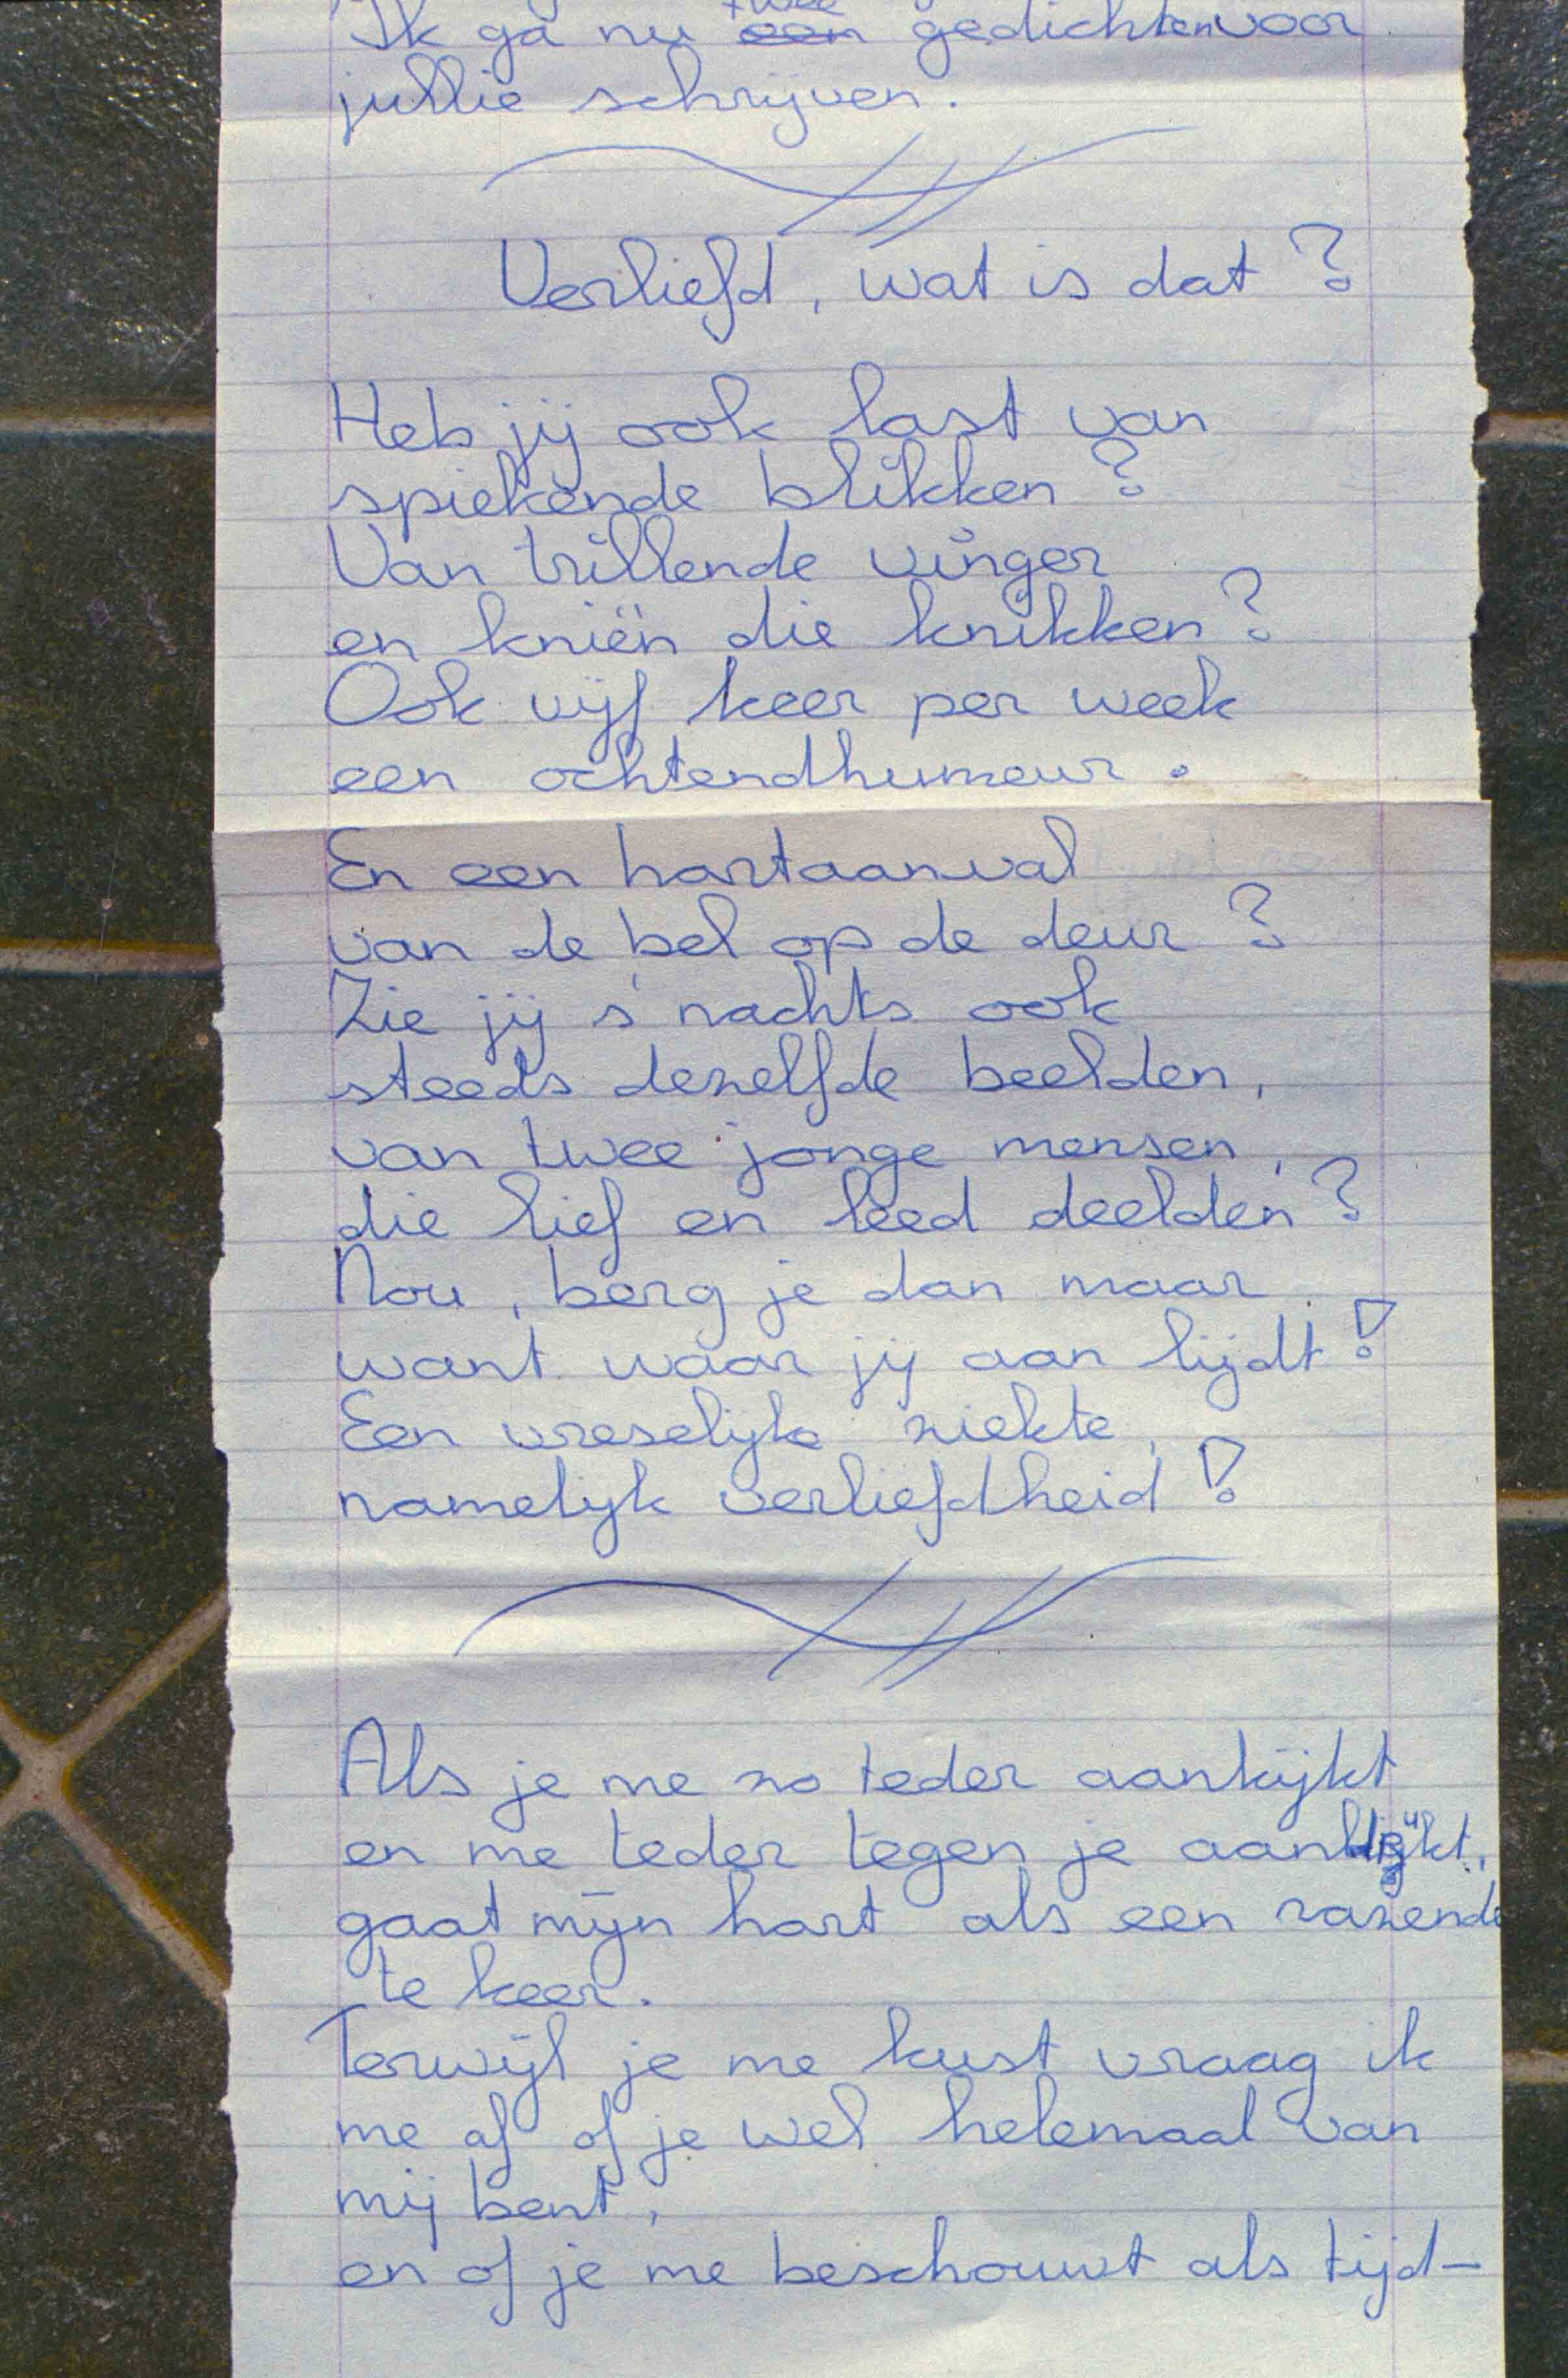 Ik ga nu twee gedichten voor
jullie schrijven.
Verliefd, wat is dat?
Heb jij ook last van
spiekende blikken?
Van trillende vinger
en kniën die knikken?
Ook vijf keer per week
een ochtendhumeur.
En een hartaanval
van de bel op de deur?
Zie jij s' nachts ook
steeds dezelfde beelden,
van twee jonge mensen,
die lief en leed deelden?
Nou, berg je dan maar
want waar jij aan lijdt!
Een vreselijke ziekte,
namelijk verliefdheid!
Als je me zo teder aankijkt
en me teder tegen je
gaat mijn hart als een razende
te keer.
Terwijl je me kust vraag ik
me af of je wel helemaal van
mij bent,
en of je me beschouwt als tijd-